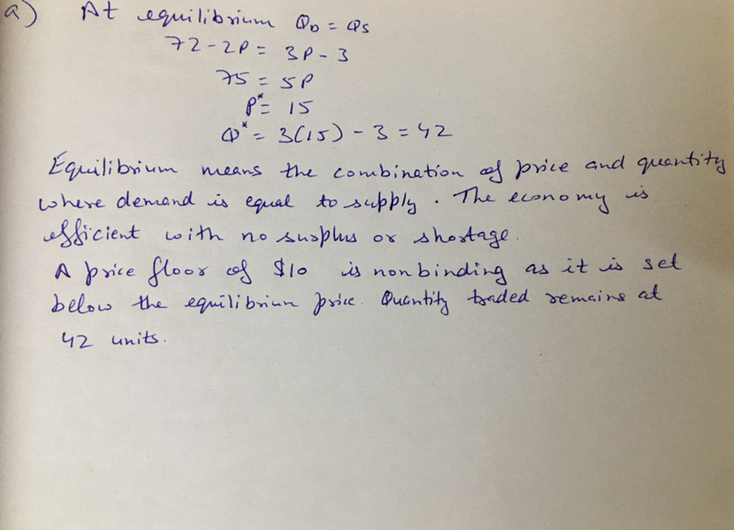 a) At equilibrium QD = QS
72-2P = 3P-3
75 = 5P
P* = 15
Q* = 3(15) - 3 = 42
Equilibrium means the combination of price and quantity
where demand is equal to supply. The economy is
efficient with no surplus or shortage.
A price floor of $10 is nonbinding as it is set
below the equilibrium price. Quantity traded remains at
42 units.